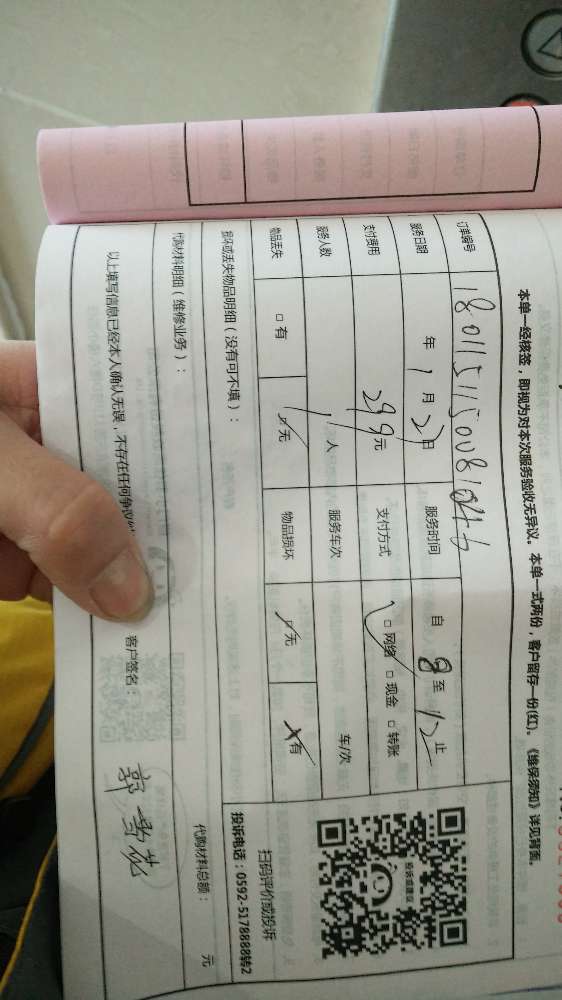 本单一经核签，即视为对本次服务验收无异议。本单一式两份，客户留存一份(红)。《维保须知》详见背面。
订单编号 180115115008104
服务日期 年 1 月 27 日 服务时间 自 8 至 12 止
支付费用 299 元 支付方式 □ 网络 □ 现金 □ 转账
服务人数 1 人 服务车次 车/次
物品丢失 □ 有 □ 无 物品损坏 □ 无 □ 有
损坏或丢失物品明细（没有可不填）：
代购材料明细（维修业务）：
代购材料总额： 元
以上填写信息已经本人确认无误，不存在任何争议
客户签名：郭雪花
投诉或建议
扫码评价或投诉
投诉电话：0592-5178888转2